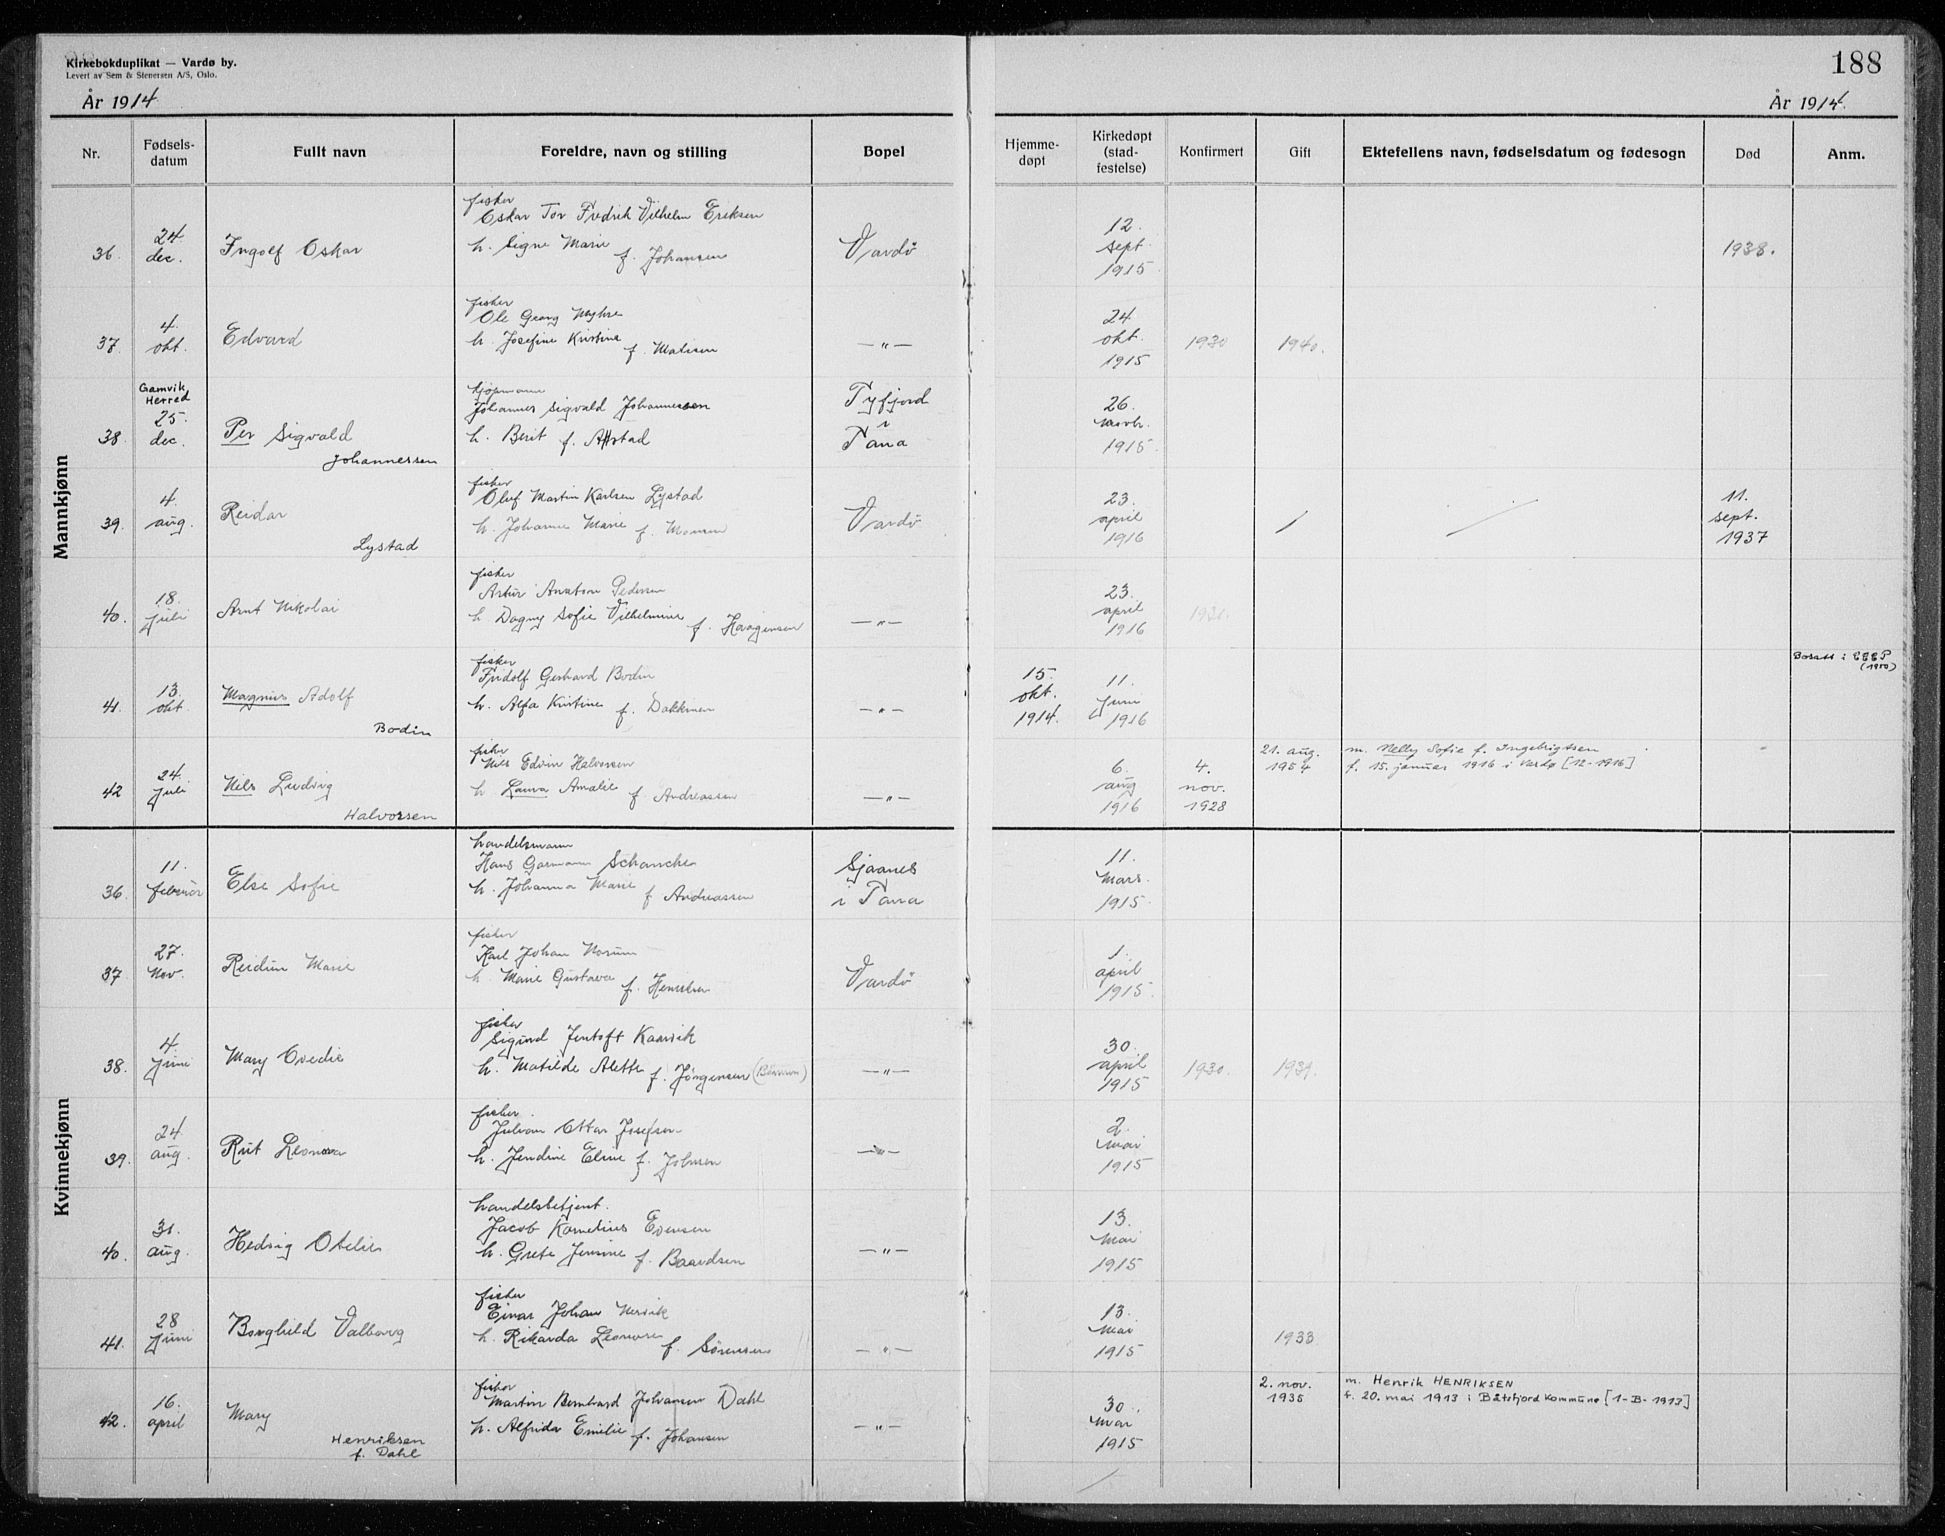 Kirkebokduplikat — Vardø by.
Levert av Sem & Stenersen A/S, Oslo.
188
År 1914
År 1914.
Nr.
Fødsels-
datum
Fullt navn
Foreldre, navn og stilling
Bopel
Hjemme-
døpt
Kirkedøpt
(stad-
festelse)
Konfirmert
Gift
Ektefellens navn, fødselsdatum og fødesogn
Død
Anm.
Mannkjønn
36.
24
dec.
Ingolf Oskar
fisker
Oskar Tor Fredrik Vilhelm Eriksen
h. Signe Marie
f. Johansen
Vardö
12.
sept.
1915
1938.
37.
4.
okt.
Edvard
fisker
Ole Georg
h. Josefine Kristine
f. Matisen
—"—
24
okt.
1915
1930
1940.
Gamvik
Herred
38.
25.
dec.
Per Sigvald
Johannessen
kjøpmann
Johannes Sigvald Johannessen
h. Berit f.
Tyfjord
i
Tana
26.
1915
39.
4.
aug.
Reidar
Lystad
fisker
Oluf Martin Karlsen Lystad
h. Johanne Marie f. Monsen
Vardö
23.
april
1916
11.
sept.
1937
40.
18.
juli
Arnt Nikolai
fisker
Artur Anaton Pedersen
h Dagny Sofie Vilhelmine
f. Haagensen
—"—
23.
april
1916
1930.
41.
13.
okt.
Magnus Adolf
Bodin
fisker
Fridolf Gerhard Bodin
h. Alfa Kristine f. Dakkmen
—"—
15.
okt.
1914.
11.
juni
1916
Bosatt i
(1950)
42
24.
juli
Nils Ludvig
Halvorsen
fisker
Nils Edvin Halvorsen
h Laura Amalie f. Andreassen
—"—
6.
aug
1916
4.
nov.
1928
21. aug.
1954
m. Nelly Sofie f. Ingebrigtsen
f. 15. januar 1916 i Vardø [12-1916]
Kvinnekjønn
36.
11.
februar
Else Sofie
handelsmann
Hans Garmann Schanche
h. Johanna Marie f Andreassen
Sjaanes
i Tana
11.
Mars.
1915.
37.
27.
Nov.
Reidun Marie
fisker
Karl Johan Norum
h. Marie Gustava f. Henriksen
Vardö
1.
april
1915.
38.
4.
juni
Mary Ovedie
fisker
Sigurd Jentoft Kaarvik
h. Matilde Alette f. Jörgensen
—"—
30.
april
1915
1930.
1939.
39.
24.
aug.
Rut Leonora
fisker.
Julian Ottar Josefsen
h. Jendine Eline f. Johnsen
—"—
2.
Mai
1915
40.
31.
aug.
Hedvig Otelie
handelsbetjent.
Jacob Kornelius Evensen
h. Grete Jensine f. Baardsen
—"—
13.
Mai
1915
41.
28
juni
Borghild Valborg
fisker
Einar Johan Nervik
h. Rikarda Leonore
f. Sörensen
—"—
13.
Mai
1915
1933
42.
16.
april
Mary
Henriksen
f. Dahl
fisker
Martin Bernhard Johansen Dahl
h. Alfrida Emilie f. Johansen
—"—
30.
Mai
1915
2. nov.
1935
m. Henrik HENRIKSEN
f. 20. mai 1913 i Båtsfjord kommune [1-B-1913]